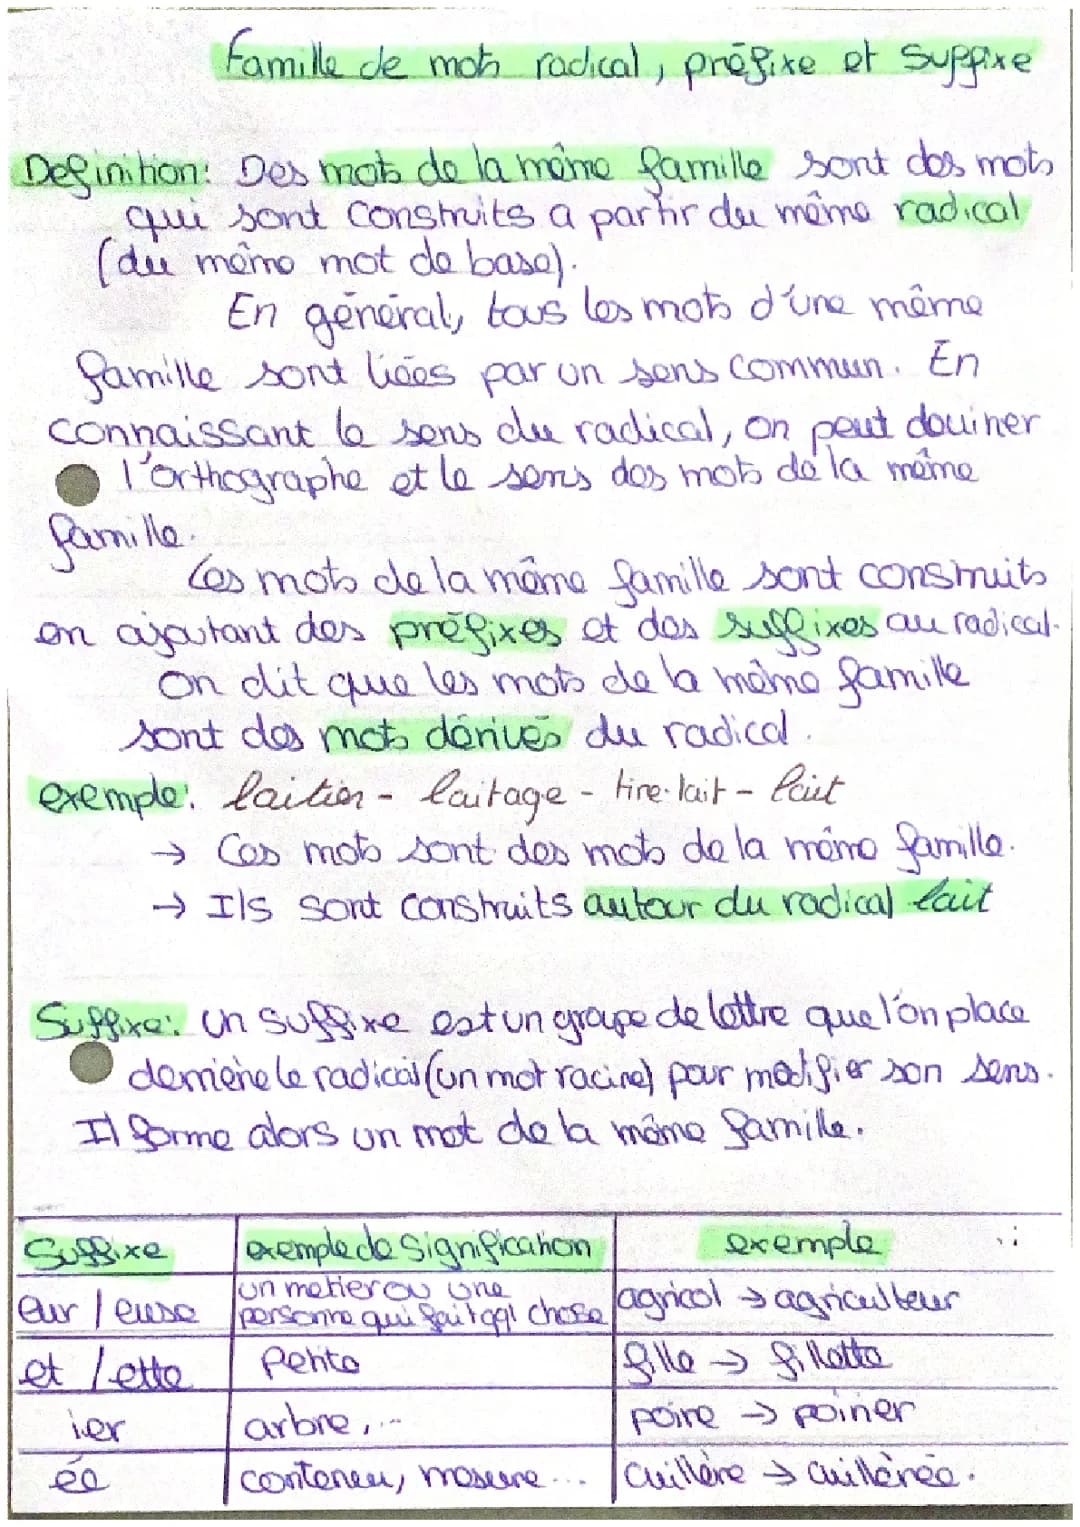 Famille de mots radical, préfixe et Suffixe
Definition: Des mots de la même famille sont des mots
qui sont construits a partir du même radical
(du même mot de base).
En général, tous les mots d'une même
famille sont liées par un sens commun. En
connaissant le sens du radical, on peut deviner
l'orthographe et le sens des mots de la même
famille.
Les mots de la même famille sont construits
en ajoutant des préfixes et des suffixes au radical.
On dit que les mots de la même famille
sont des mots dérivés du radical.
exemple: laitier - laitage - tire-lait - lait
→ Ces mots sont des mots de la même famille.
→ Ils sont construits autour du radical lait
Suffixe: un suffixe est un groupe de lettre que l'on place
derrière le radical (un mot racine) pour modifier son sens.
Il forme alors un mot de la même famille.
Suffixe exemple de Signification exemple
eur / euse un metier ou une personne qui fait qql chose agricol → agriculteur
et / ette Petite fille → fillette
ier arbre, ... poire → poirier
ée conteneu, mesure... Cuillère → cuillèrée.